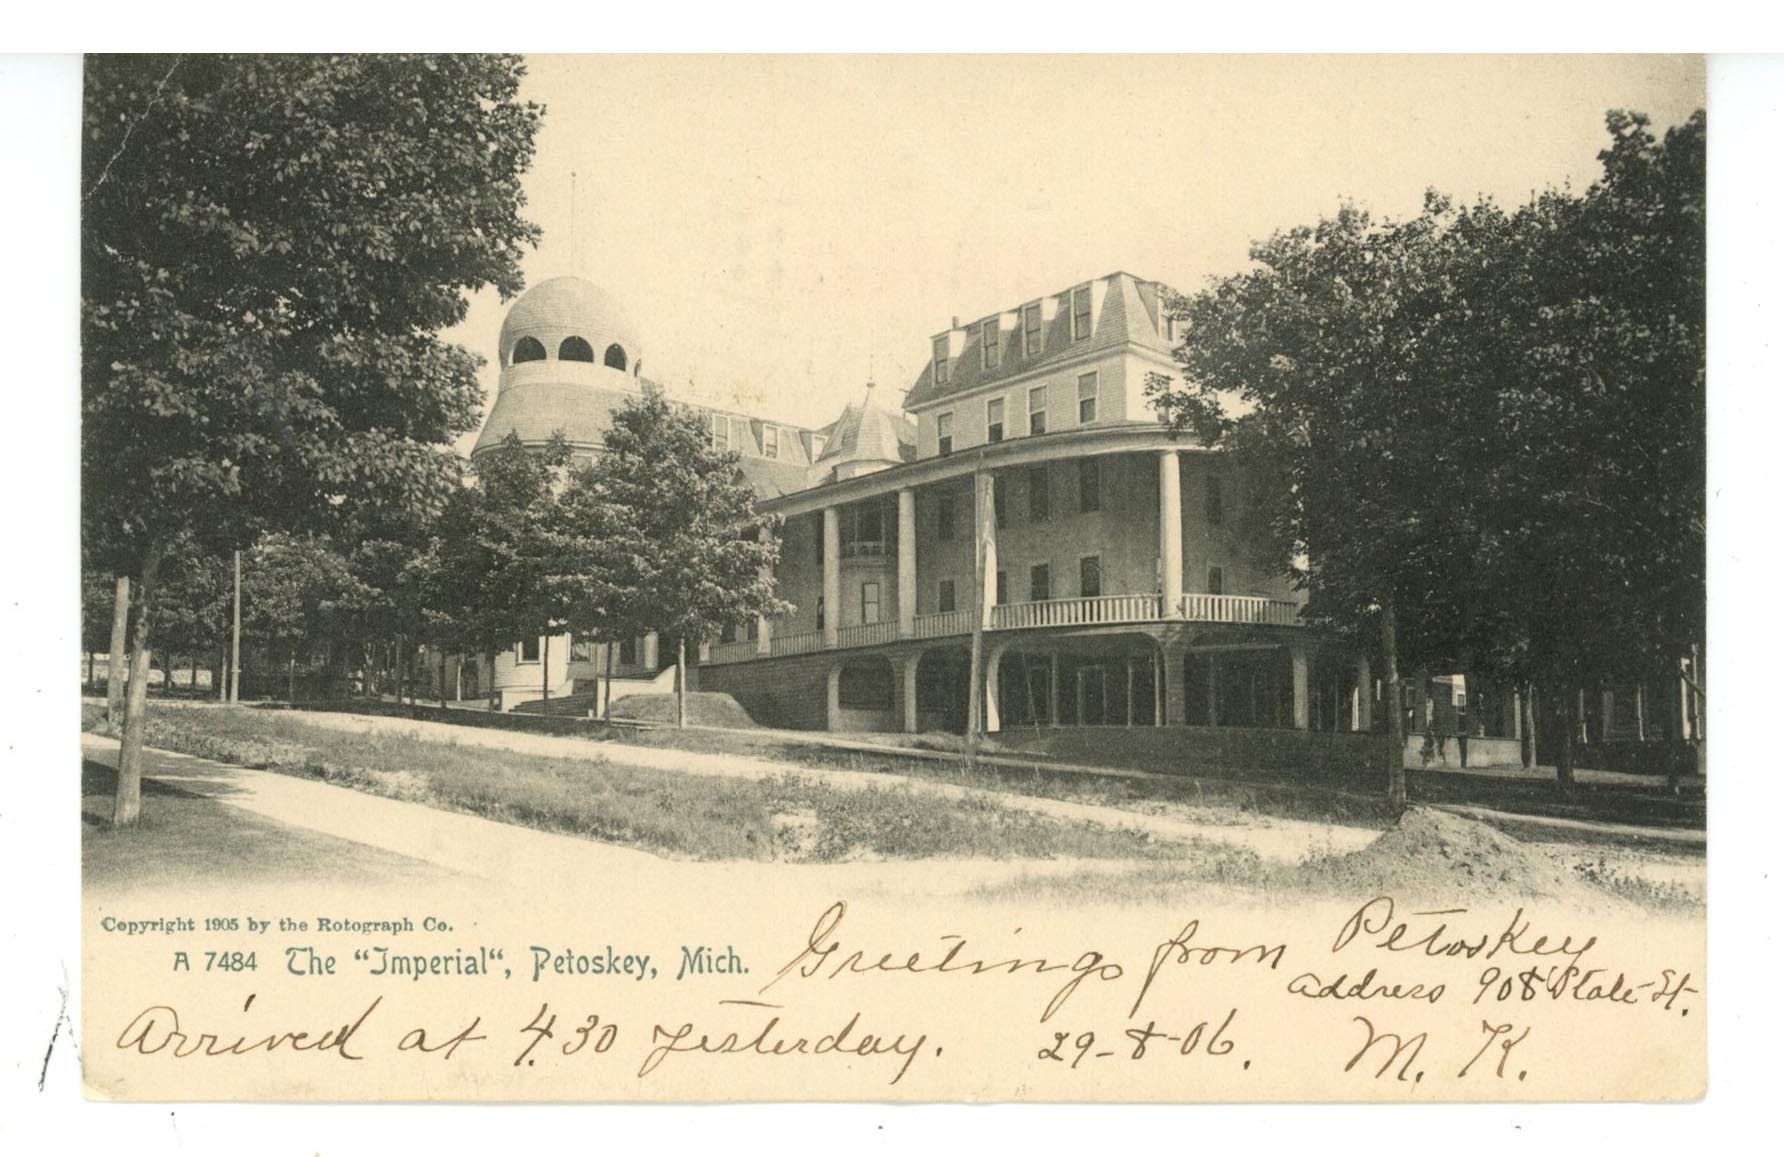 Copyright 1905 by the Rotograph Co.
A 7484 The “Imperial“, Petoskey, Mich.
Greetings from Petoskey
address 908 State St.
Arrived at 4.30 yesterday. 29-8-06. M. K.